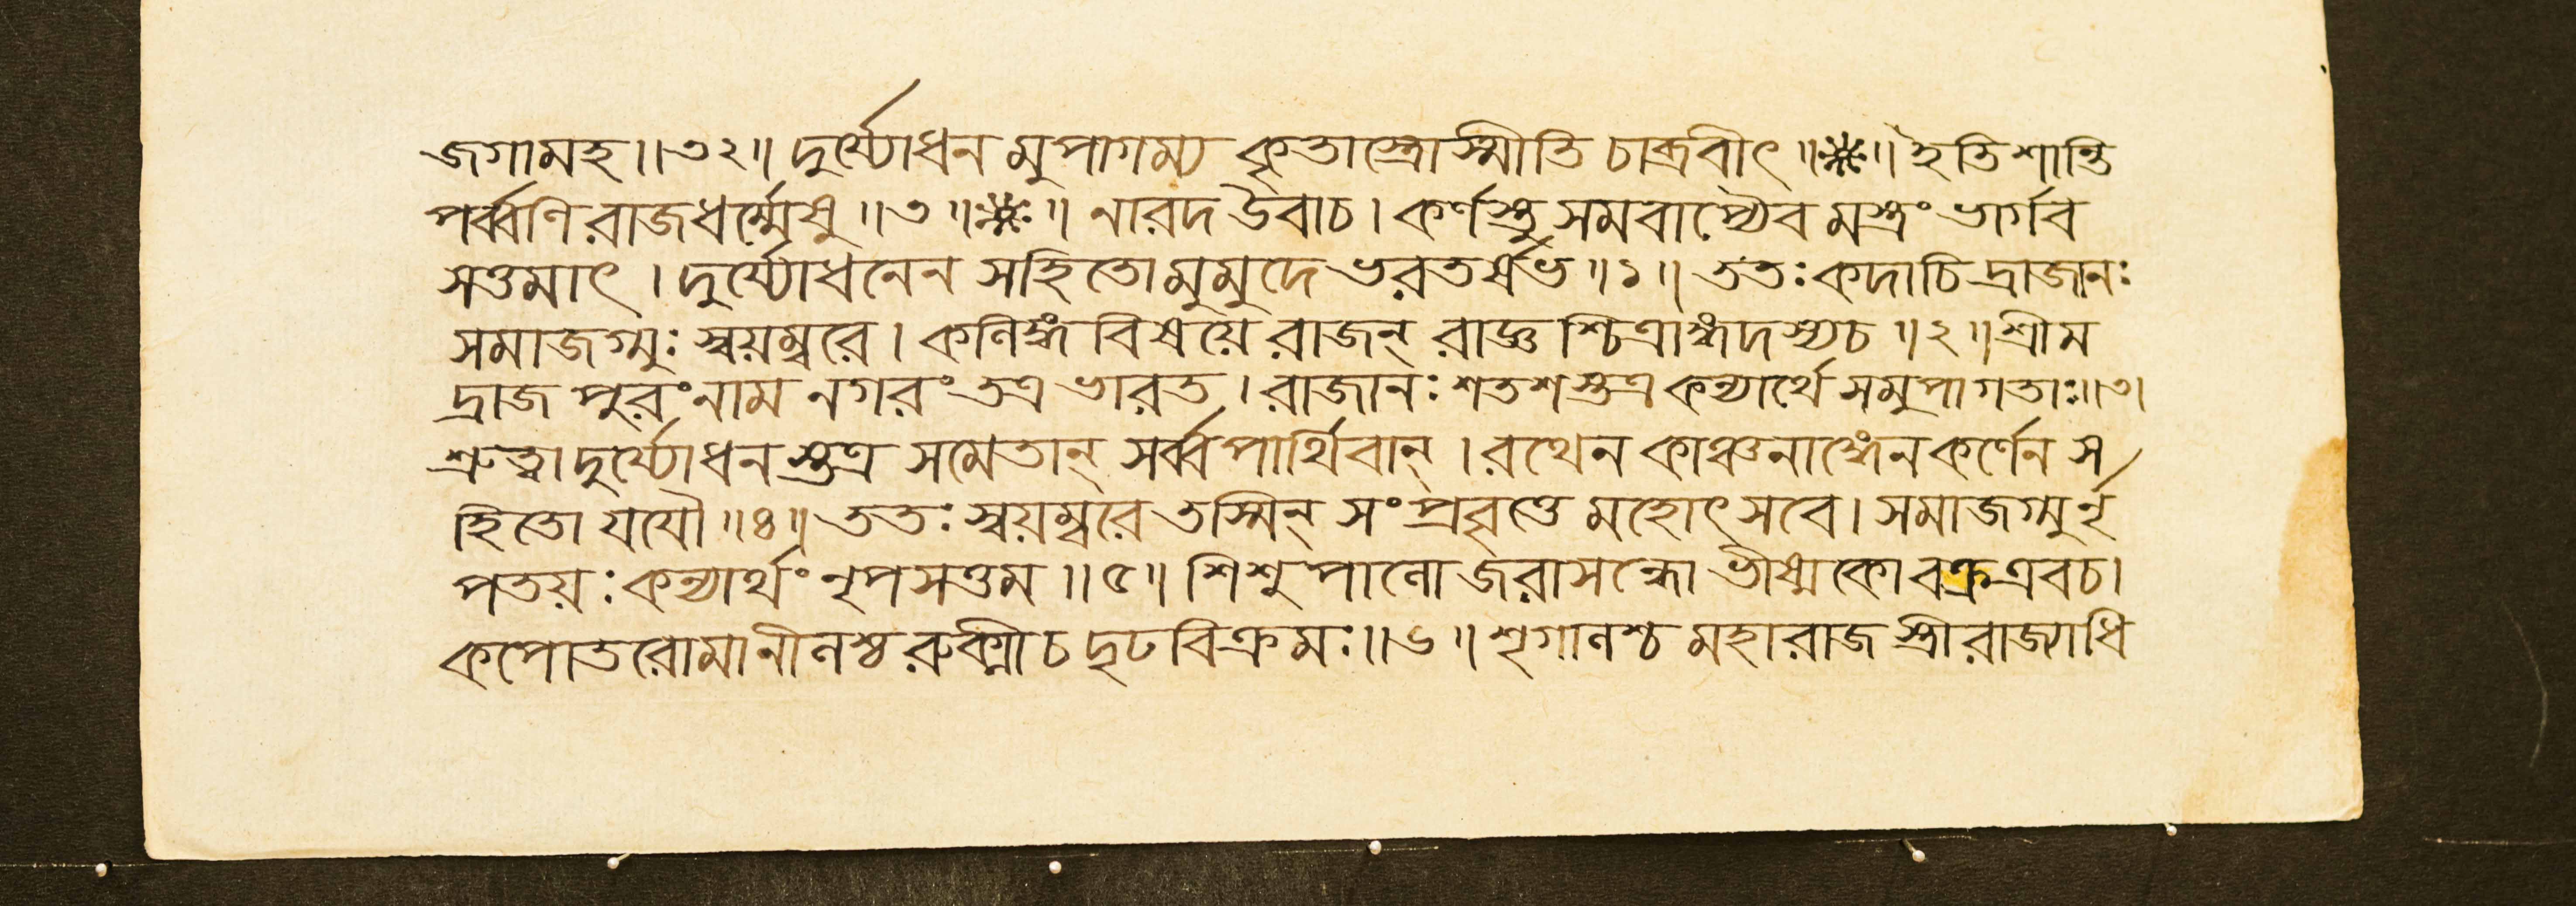 জগামহ ॥ ৩২ ॥ দুর্য্যোধন মুপাগম্য কৃতাস্ত্রোস্মীতি চাব্রবীৎ ॥ ❋ ॥ ইতি শান্তি
পর্ব্বণি রাজধর্ম্মেষু ॥ ৩ ॥ ❋ ॥ নারদ উবাচ । কর্ণস্তু সমবাপ্যৈব মস্ত্রং ভার্গব
সত্তমাৎ । দুর্য্যোধনেন সহিতো মুমুদে ভরতর্ষভ ॥ ১ ॥ ততঃ কদাচি দ্রাজানঃ
সমাজগ্মুঃ স্বয়ম্বরে । কলিঙ্গ বিষয়ে রাজন্ রাজ্ঞ শ্চিত্রাঙ্গদস্যচ ॥ ২ ॥ শ্রীম
দ্রাজ পুরং নাম নগরং তত্র ভারত । রাজানঃ শতশ স্তত্র কন্যার্থে সমুপাগতাঃ ॥ ৩ ।
শ্রুত্বা দুর্য্যোধন স্তত্র সমেতান্ সর্ব্ব পার্থিবান্ । রথেন কাঞ্চনাঙ্গেন কর্ণেন স
হিতো যযৌ ॥ ৪ ॥ ততঃ স্বয়ম্বরে তস্মিন্ সংপ্রবৃত্তে মহোৎসবে । সমাজগ্মুর্নৃ
পতয়ঃ কন্যার্থং নৃপসত্তম ॥ ৫ ॥ শিশুপালো জরাসন্ধো ভীষ্মকো বক্র এবচ ।
কপোতরোমা নীলশ্চ রুক্মী চ দৃঢবিক্রমঃ ॥ ৬ ॥ শৃগালশ্চ মহারাজ স্ত্রীরাজ্যাধি